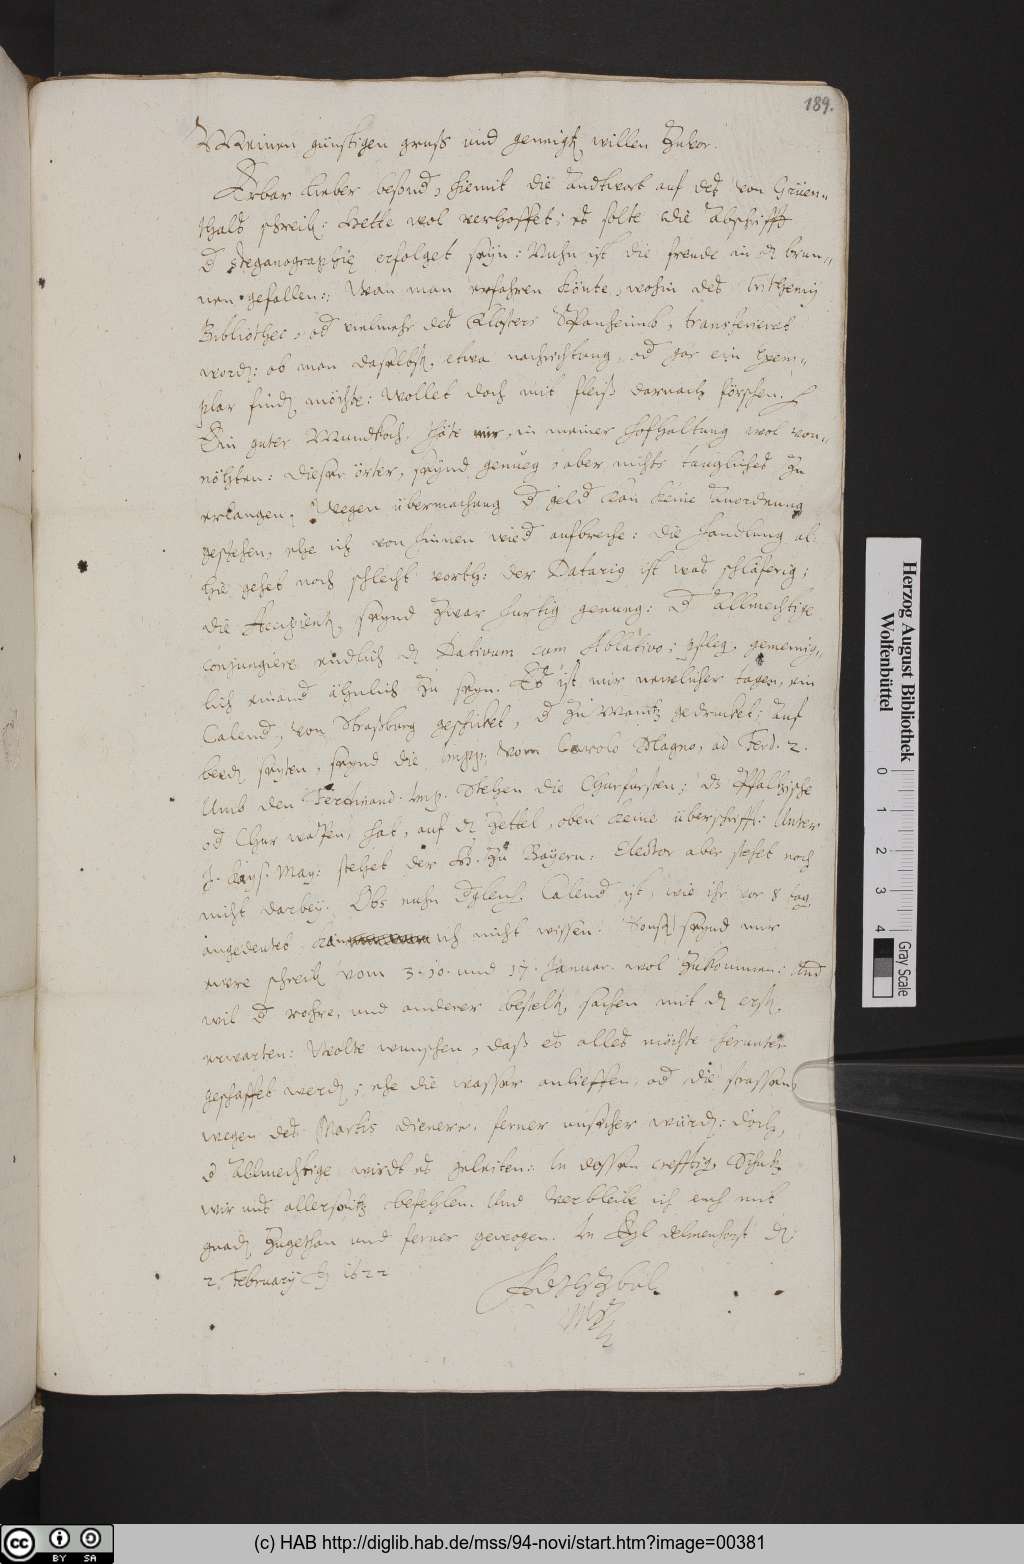 189.
Meinen günstigen gruß und geneigt willen zuvor.
Erbar lieber besond, hiemit die andtwort auf des von Grüen-
thals schreib: hette wol verhoffet, es solte die abschrifft
d Steganographię erfolget seÿn: Nuhn ist die freude in d brun-
nen gefallen: Wan man erfahren könte, wohin des Trithemij
Bibliothec, od vielmehr des Closters Spanheimb, transferieret
word: ob man daselbst, etwa nachrichtung, od gar ein exem-
plar find möchte: Wollet doch mit fleiß darnach förschen.
Ein guter Mundkoch, häte mir, in meiner hofhaltung wol von-
nöhten: dieser örter, seÿnd genueg, aber nichts taugliches zu
erlangen. Wegen übermachung d geld kan keine anordnung
geschehen, ehe ich von hinnen wied aufbreche: die handlung al-
hie gehet noch schlecht vorth: der Dataris ist was schläferig;
die Accipient, seÿnd zwar hurtig genueg: D Allmechtige
conjungiere endlich d Dativum cum Ablativo; pfleg, gemeinig-
lich einand ähnlich zu seyn. Es ist mir newlicher tagen, ein
Calend, von Straßburg geschicket, d zu Maintz gedrucket; auf
beed seÿten, seÿnd die Impp. vom Carolo Magno, ad Ferd. 2.
Umb den Ferdinand. Imp. stehen die Churfursten; d Pfaltzische
od Chur wapen, hat, auf d Zettel, oben keine überschrifft: Unter
J. Kays. May: stehet der H. zu Bayern: Elector aber stehet noch
nicht darbey. Obs nuhn dgleich Calend ist, wie ihr vor 8 tag
angedeutet kan ich nicht wissen. Sonst seÿnd mir
ewre schreib vom 3. 10. und 17. Januar. wol zukommen: Und
wil d rohre, und anderer bestelt, sachen mit d erst,
erwarten: Wolte wunschen, daß es alles möchte herunter
geschaffet werd; ehe die wasser anlieffen, od die strassen,
wegen des Martis dienere, ferner unsicher würd: doch,
d Allmechtige wirdt es geleiten: In dessen crefftig. Schutz
wir uns allerseitz befehlen. Und Verbleibe ich euch mit
gnad zugethan und ferner gewogen. In Eÿl delmenhorst d.
2. Februarij Aº 1622